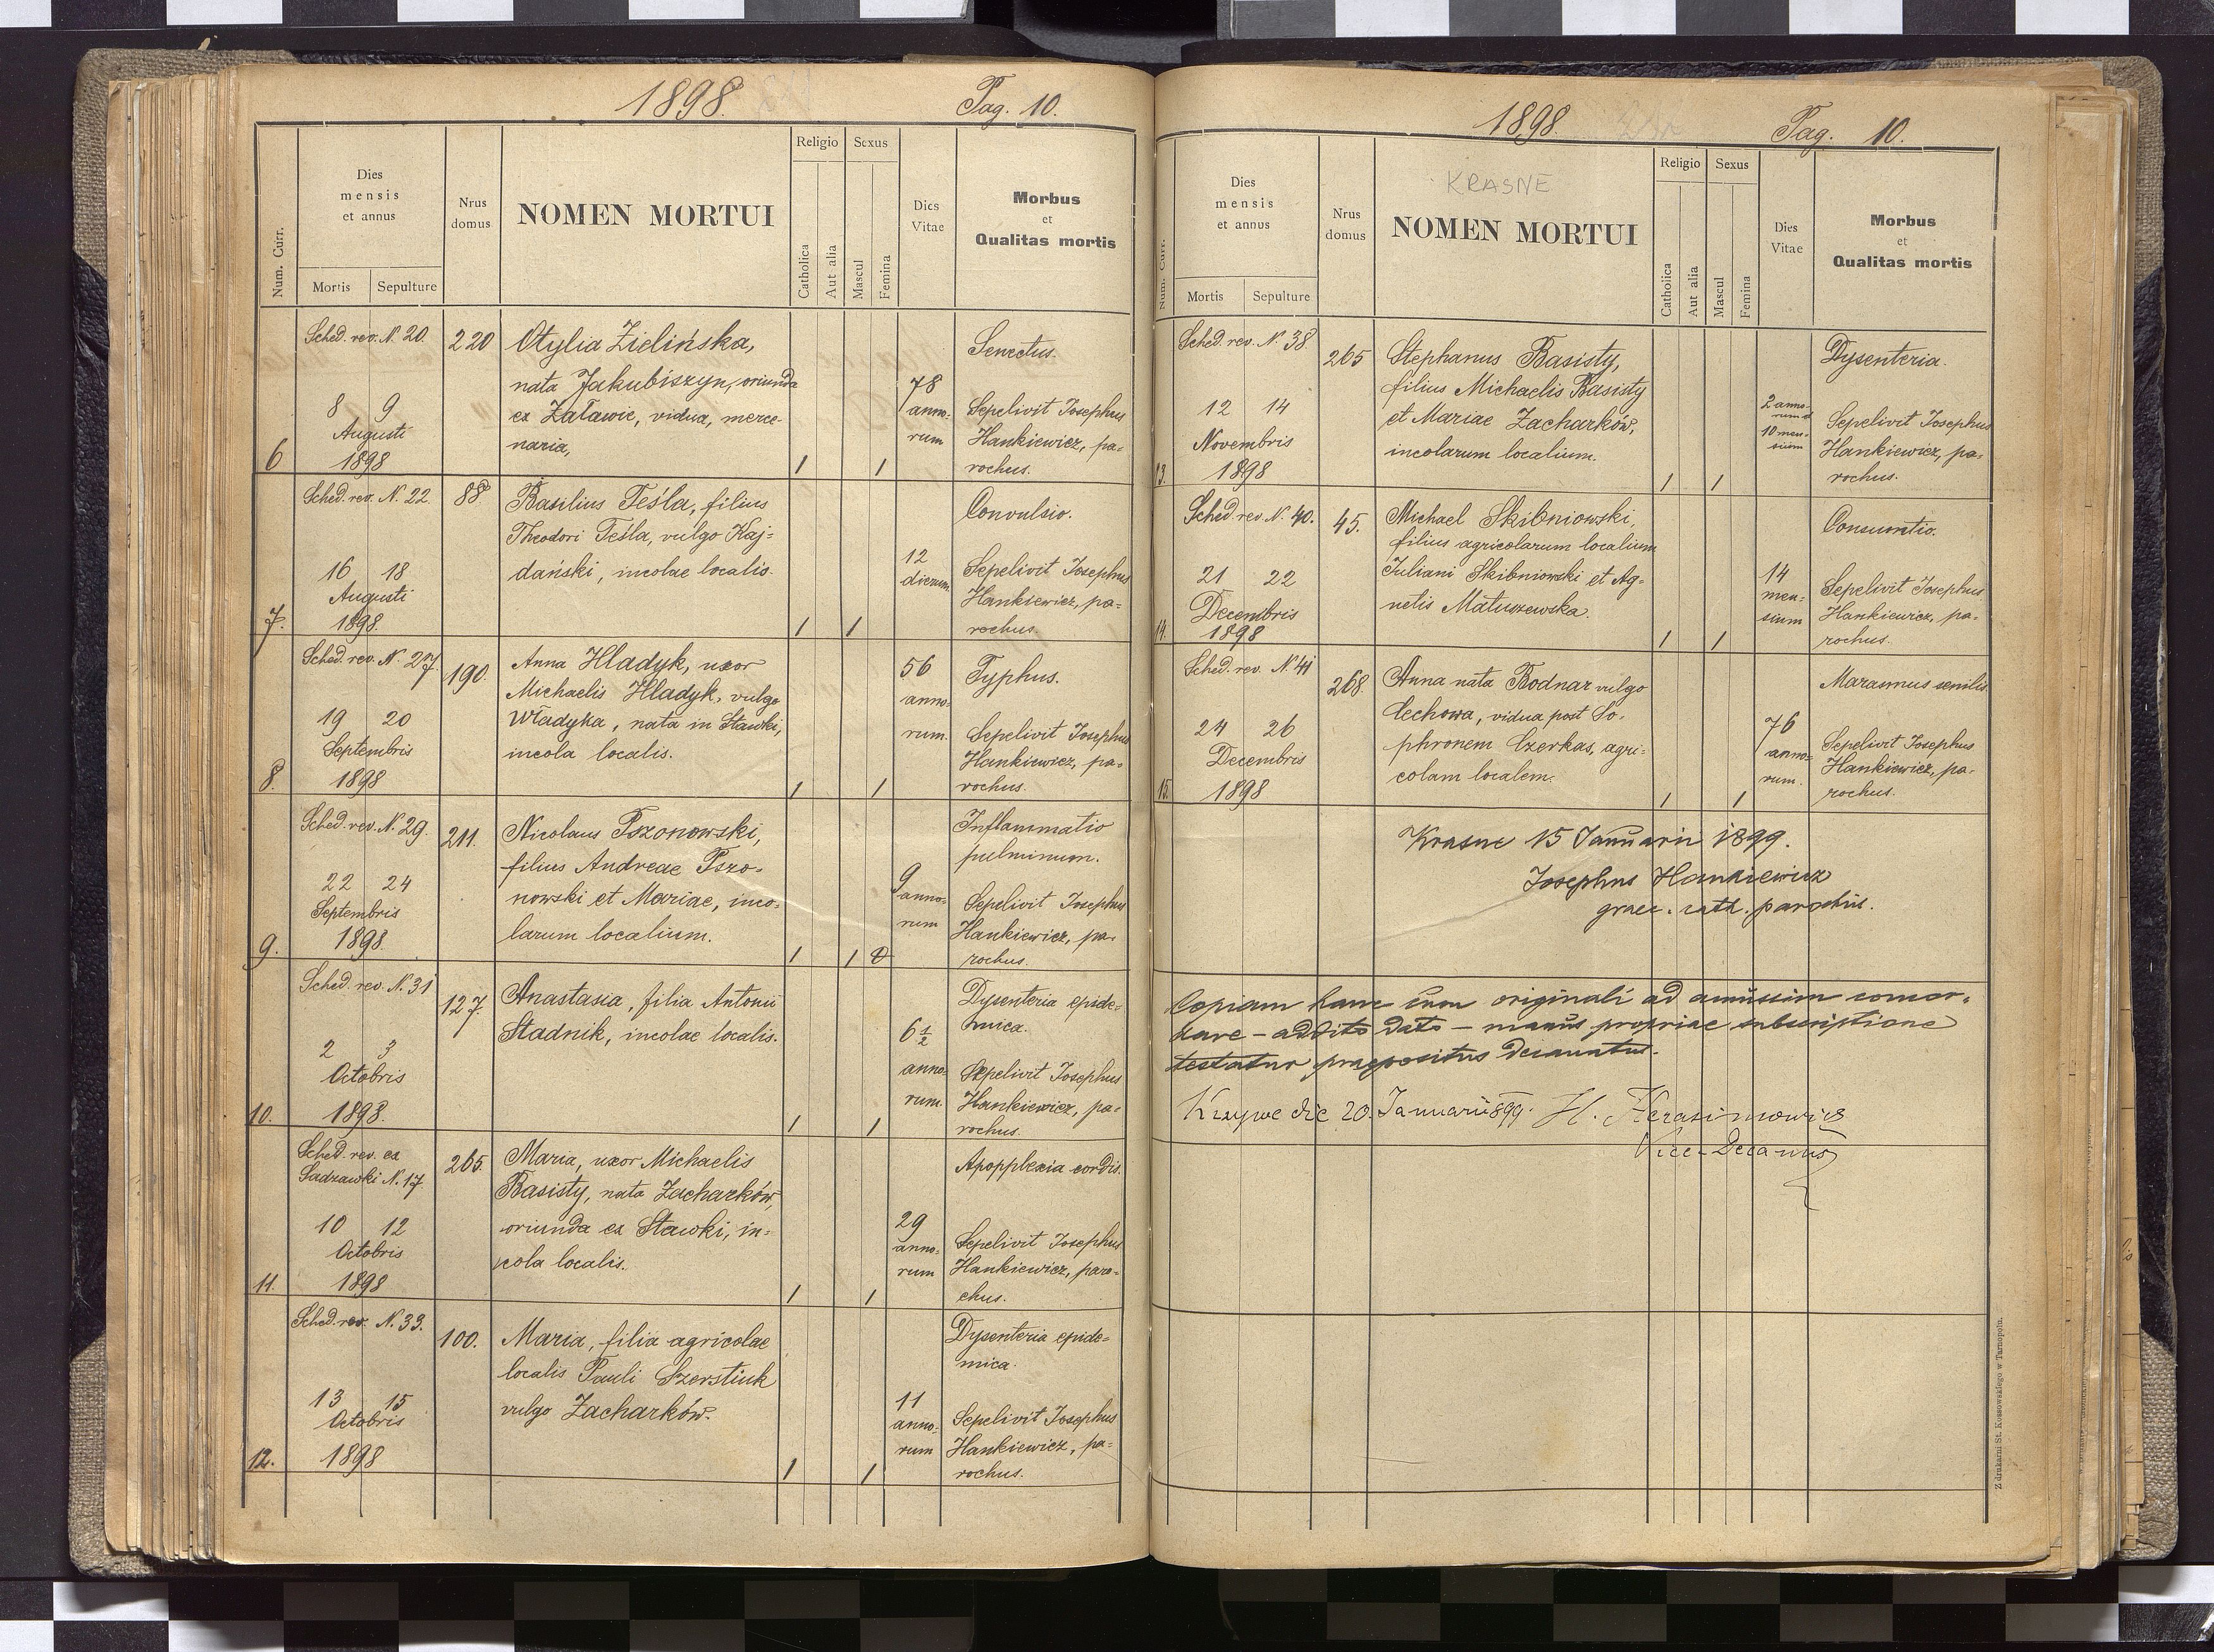 1898.
Pag. 10.
Num. Curr.
Dies
mensis
et annus
Mortis
Sepulture
Nrus
domus
NOMEN MORTUI
Religio
Catholica
Aut alia
Sexus
Mascul
Femina
Dies
Vitae
Morbus
et
Qualitas mortis
Sched. rev. N. 20.
220
Otylia Zielińska,
nata Jakubiszyn, oriunda
ex Załawie, vidua, merce-
naria,
8 9
Augusti
1898
6
1 1
78
anno-
rum
Senectus.
Sepelivit Josephus
Hankiewicz, pa-
rochus.
Sched. rev. N. 22.
88
Basilius Teśla, filius
Theodori Teśla, vulgo Kaj-
dański, incolae localis.
16 18
Augusti
1898.
7.
1 1
12
dierum
Convulsio.
Sepelivit Josephus
Hankiewicz, pa-
rochus.
Sched. rev. N. 27.
190.
Anna Hladyk, uxor
Michaelis Hladyk, vulgo
Władyka, nata in Stawki,
incola localis.
19 20
Septembris
1898
8.
1 1
56
anno-
rum.
Typhus.
Sepelivit Josephus
Hankiewicz, pa-
rochus.
Sched. rev. N. 29.
211.
Nicolaus Pszonowski,
filius Andreae Pszo-
nowski et Mariae, inco-
larum localium.
22 24
Septembris
1898.
9.
1 1
9
anno-
rum
Inflammatio
pulminum.
Sepelivit Josephus
Hankiewicz, pa-
rochus.
Sched. rev. N. 31
127.
Anastasia, filia Antonii
Stadnik, incolae localis.
2 3
Octobris
1898.
10.
1 1
6 1/2
anno-
rum.
Dysenteria epide-
mica.
Sepelivit Josephus
Hankiewicz, pa-
rochus.
Sched. rev. ex
Sadzawki N. 17.
265.
Maria, uxor Michaelis
Basisty, nata Zacharków,
oriunda ex Stawki, in-
cola localis.
10 12
Octobris
1898
11.
1 1
29
anno-
rum
Apopplexia cordis.
Sepelivit Josephus
Hankiewicz, paro-
chus.
Sched. rev. N. 33.
100.
Maria, filia agricolae
localis Pauli Szerstiuk
vulgo Zacharków.
13 15
Octobris
1898
12.
1 1
11
anno-
rum
Dysenteria epide-
mica.
Sepelivit Josephus
Hankiewicz, pa-
rochus.
1898.
Pag. 10.
KRASNE
Num. Curr.
Dies
mensis
et annus
Mortis
Sepulture
Nrus
domus
NOMEN MORTUI
Religio
Catholica
Aut alia
Sexus
Mascul
Femina
Dies
Vitae
Morbus
et
Qualitas mortis
Sched. rev. N. 38
265
Stephanus Basisty,
filius Michaelis Basisty
et Mariae Zacharków,
incolarum localium.
12 14
Novembris
1898
13.
1 1
2 anno-
rum et
10 men-
sium
Dysenteria.
Sepelivit Josephus
Hankiewicz, pa-
rochus.
Sched. rev. N. 40.
45.
Michael Skibniowski,
filius agricolarum localium
Juliani Skibniowski et Ag-
netis Matuszewska.
21 22
Decembris
1898
14.
1 1
14
men-
sium
Consumtio.
Sepelivit Josephus
Hankiewicz, pa-
rochus.
Sched. rev. N. 41
268.
Anna nata Bodnar vulgo
Cechowa, vidua post So-
phronem Czerkas, agri-
colam localem.
24 26
Decembris
1898
15.
1 1
76
anno-
rum.
Marasmus senilis.
Sepelivit Josephus
Hankiewicz, pa-
rochus.
Krasne 15 Januarii 1899.
Josephus Hankiewicz
graec. cath. parochus.
Copiam hanc cum originali ad amussim concor-
dare – addito dato – manus propriae subscriptione
testatur praepositus decanatus.
Krzywe die 20. Januarii 899. H. Herasimowicz
Vice-Decanus
Z drukarni St. Kossowskiego w Tarnopolu.